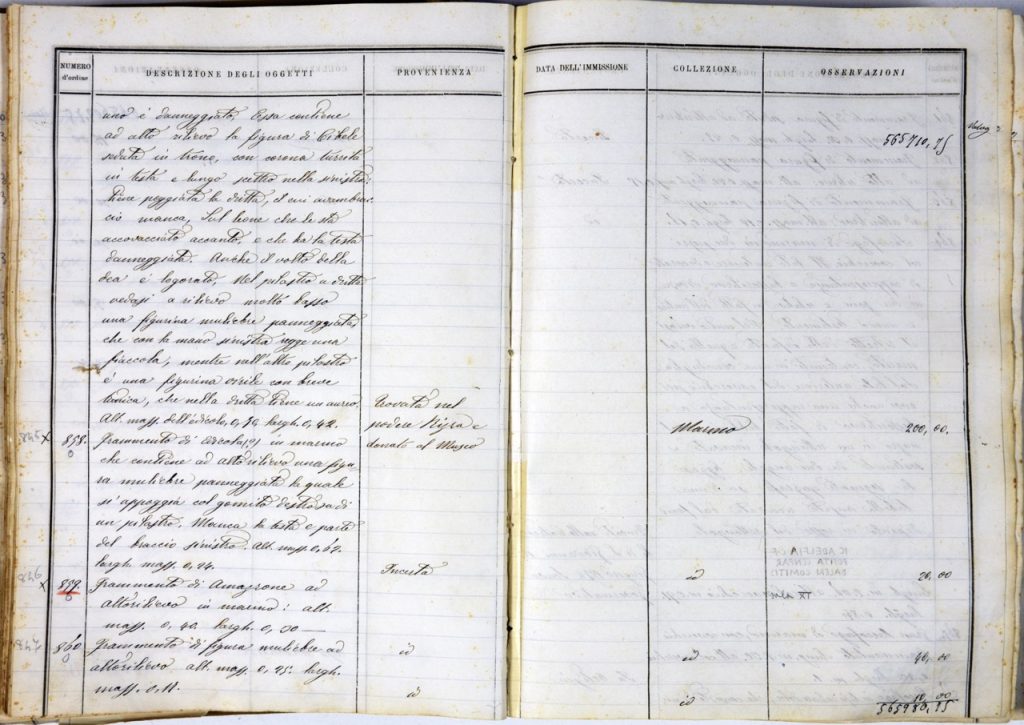 NUMERO
d'ordine
DESCRIZIONE DEGLI OGGETTI
PROVENIENZA
DATA DELL'IMMISSIONE
COLLEZIONE
OSSERVAZIONI
uno è danneggiato. Essa contiene
ad alto rilievo la figura di Cibele
seduta in trono, con corona turrita
in testa e lungo scettro nella sinistra.
Tiene poggiata la dritta, il cui avambrac
cio manca, sul leone che le sta
accovacciato accanto, e che ha la testa
danneggiata. Anche il volto della
dea è logorato. Nel pilastro a dritta
vedesi a rilievo molto basso
una figurina muliebre panneggiata,
che con la mano sinistra regge una
fiaccola, mentre nell'altro pilastro
è una figurina virile con breve
tunica, che nella dritta tiene un
Alt. mass. dell'edicola 0, largh. 0,42.
565710,95
Trovata nel
podere e
donato al Museo
Marmo
200,00.
858.
Frammento di edicola(?) in marmo
che contiene ad altorilievo una figu
ra muliebre panneggiata la quale
si appoggia col gomito destro su di
un pilastro. Manca la testa e parte
del braccio sinistro. Alt. mass. 0,62.
largh. mass. 0,24.
Incerta
id
20,00
859.
Frammento di Amazzone ad
altorilievo in marmo: alt.
mass. 0,40. largh. 0,30
id
id
40,00
860.
Frammento di figura muliebre ad
altorilievo alt. mass. 0,25. largh.
mass. 0,18.
id
id
10,00
565980,95